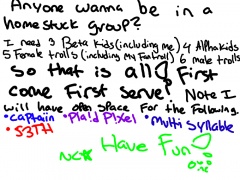 Anyone wanna be in a
homestuck group?
I need 3 Beta kids(including me) 4 Alphakids
5 Female trolls(including my Fantroll) 6 male trolls
So that is all! First
come First serve! Note I
will have open space for the following.
•captain •Pla!d P!xel •Multi Syllable
•S3TH
Have Fun!